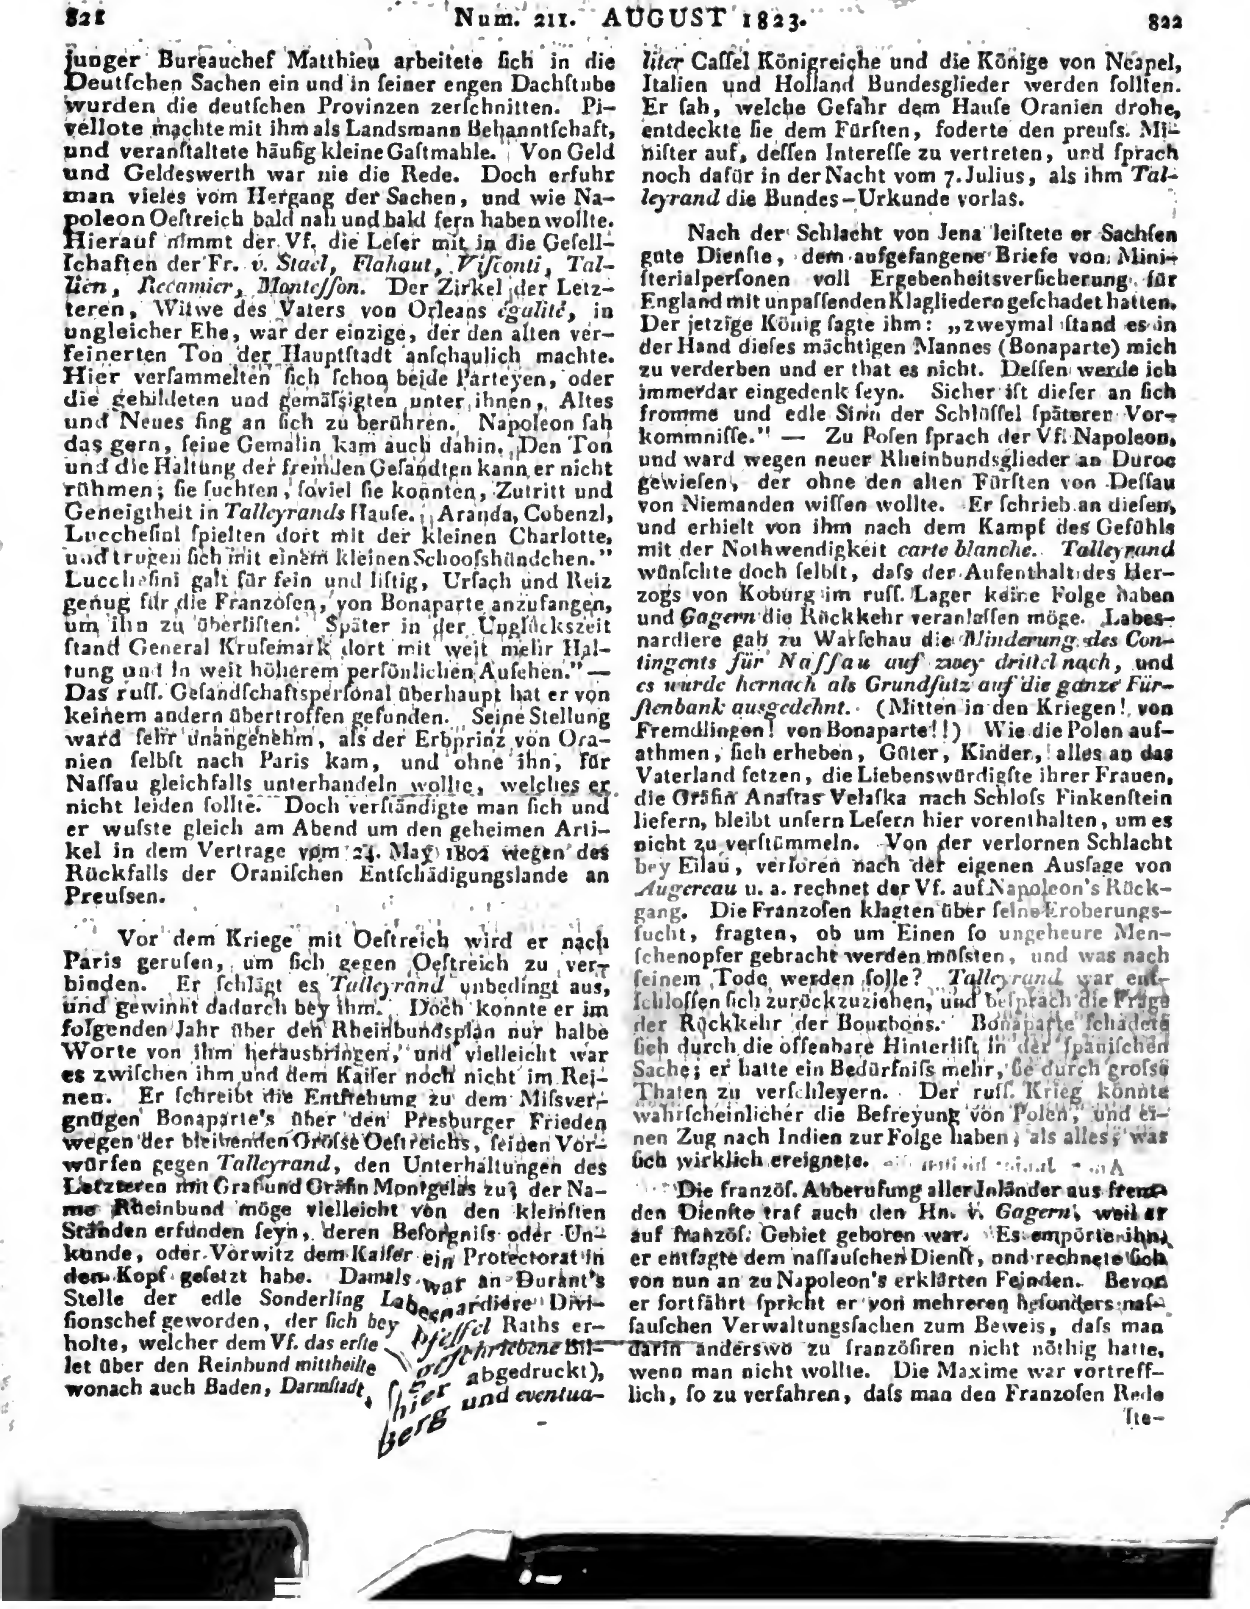 821 Num. 211. AUGUST 1823. 822
junger Bureauchef Matthieu arbeitete ſich in die
Deutſchen Sachen ein und in ſeiner engen Dachſtube
wurden die deutſchen Provinzen zerſchnitten. Pi-
vellote machte mit ihm als Landsmann Bekanntſchaft,
und veranſtaltete häufig kleine Gaſtmahle. Von Geld
und Geldeswerth war nie die Rede. Doch erfuhr
man vieles vom Hergang der Sachen, und wie Na-
poleon Oeſtreich bald nah und bald fern haben wollte.
Hierauf nimmt der Vf. die Leſer mit in die Geſell-
ſchaften der Fr. v. Stael, Flahaut, Viſconti, Tal-
lien, Recamier, Monteſſon. Der Zirkel der Letz-
teren, Witwe des Vaters von Orleans égalité, in
ungleicher Ehe, war der einzige, der den alten ver-
feinerten Ton der Hauptſtadt anſchaulich machte.
Hier verſammelten ſich ſchon beide Parteyen, oder
die gebildeten und gemäſsigten unter ihnen, Altes
und Neues fing an ſich zu berühren. Napoleon ſah
das gern, ſeine Gemalin kam auch dahin. Den Ton
und die Haltung der fremden Geſandten kann er nicht
rühmen; ſie ſuchten, ſoviel ſie konnten, Zutritt und
Geneigtheit in Talleyrands Hauſe. Aranda, Cobenzl,
Luccheſini ſpielten dort mit der kleinen Charlotte,
und trugen ſich mit einem kleinen Schooſshündchen."
Luccheſini galt für fein und liſtig, Urſach und Reiz
genug für die Franzoſen, von Bonaparte anzufangen,
um ihn zu überliſten. Später in der Unglückszeit
ſtand General Kruſemark dort mit weit mehr Hal-
tung und in weit höherem perſönlichen Anſehen." —
Das ruſſ. Geſandſchaftsperſonal überhaupt hat er von
keinem andern übertroffen gefunden. Seine Stellung
ward ſehr unangenehm, als der Erbprinz von Ora-
nien ſelbſt nach Paris kam, und ohne ihn, für
Naſſau gleichfalls unterhandeln wollte, welches er
nicht leiden ſollte. Doch verſtändigte man ſich und
er wuſste gleich am Abend um den geheimen Arti-
kel in dem Vertrage vom 24. May 1802 wegen des
Rückfalls der Oraniſchen Entſchädigungslande an
Preuſsen.
Vor dem Kriege mit Oeſtreich wird er nach
Paris gerufen, um ſich gegen Oeſtreich zu ver-
binden. Er ſchlägt es Talleyrand unbedingt aus,
und gewinnt dadurch bey ihm. Doch konnte er im
folgenden Jahr über den Rheinbundsplan nur halbe
Worte von ihm herausbringen, und vielleicht war
es zwiſchen ihm und dem Kaiſer noch nicht im Rei-
nen. Er ſchreibt die Entſtehung zu dem Miſsver-
gnügen Bonaparte's über den Presburger Frieden
wegen der bleibenden Gröſse Oeſtreichs, ſeinen Vor-
würfen gegen Talleyrand, den Unterhaltungen des
Letzteren mit Graf und Gräfin Montgelas zu; der Na-
me Rheinbund möge vielleicht von den kleinſten
Ständen erfunden ſeyn, deren Beſorgniſs oder Un-
kunde, oder Vorwitz dem Kaiſer ein Protectorat in
den Kopf geſetzt habe. Damals war an Durant's
Stelle der edle Sonderling Labesnardière Divi-
ſionschef geworden, der ſich bey Pfeffel Raths er-
holte, welcher dem Vf. das erſte geſchriebene Bil-
let über den Reinbund mittheilte (S. hier abgedruckt),
wonach auch Baden, Darmſtadt, Berg und eventua-
liter Caſſel Königreiche und die Könige von Neapel,
Italien und Holland Bundesglieder werden ſollten.
Er ſah, welche Gefahr dem Hauſe Oranien drohe,
entdeckte ſie dem Fürſten, foderte den preuſs. Mi-
niſter auf, deſſen Intereſſe zu vertreten, und ſprach
noch dafür in der Nacht vom 7. Julius, als ihm Tal-
leyrand die Bundes-Urkunde vorlas.
Nach der Schlacht von Jena leiſtete er Sachſen
gute Dienſte, dem aufgefangene Briefe von Mini-
ſterialperſonen voll Ergebenheitsverſicherung für
England mit unpaſſenden Klagliedern geſchadet hatten.
Der jetzige König ſagte ihm: „zweymal ſtand es in
der Hand dieſes mächtigen Mannes (Bonaparte) mich
zu verderben und er that es nicht. Deſſen werde ich
immerdar eingedenk ſeyn. Sicher iſt dieſer an ſich
fromme und edle Sinn der Schlüſſel ſpäterer Vor-
kommniſſe." — Zu Poſen ſprach der Vf. Napoleon,
und ward wegen neuer Rheinbundsglieder an Duroc
gewieſen, der ohne den alten Fürſten von Deſſau
von Niemanden wiſſen wollte. Er ſchrieb an dieſen,
und erhielt von ihm nach dem Kampf des Gefühls
mit der Nothwendigkeit carte blanche. Talleyrand
wünſchte doch ſelbſt, daſs der Aufenthalt des Her-
zogs von Koburg im ruſſ. Lager keine Folge haben
und Gagern die Rückkehr veranlaſſen möge. Labes-
nardiere gab zu Warſchau die Minderung des Con-
tingents für Naſſau auf zwey drittel nach, und
es wurde hernach als Grundſatz auf die ganze Für-
ſtenbank ausgedehnt. (Mitten in den Kriegen! von
Fremdlingen! von Bonaparte!!) Wie die Polen auf-
athmen, ſich erheben, Güter, Kinder, alles an das
Vaterland ſetzen, die Liebenswürdigſte ihrer Frauen,
die Gräfin Anaſtas Velaſka nach Schloſs Finkenſtein
liefern, bleibt unſern Leſern hier vorenthalten, um es
nicht zu verſtümmeln. Von der verlornen Schlacht
bey Eilau, verloren nach der eigenen Ausſage von
Augereau u. a. rechnet der Vf. auf Napoleon's Rück-
gang. Die Franzoſen klagten über ſeine Eroberungs-
ſucht, fragten, ob um Einen ſo ungeheure Men-
ſchenopfer gebracht werden müſsten, und was nach
ſeinem Tode werden ſolle? Talleyrand war ent-
ſchloſſen ſich zurückzuziehen, und beſprach die Frage
der Rückkehr der Bourbons. Bonaparte ſchadete
ſich durch die offenbare Hinterliſt in der ſpaniſchen
Sache; er hatte ein Bedürfniſs mehr, ſie durch groſse
Thaten zu verſchleyern. Der ruſſ. Krieg konnte
wahrſcheinlicher die Befreyung von Polen, und ei-
nen Zug nach Indien zur Folge haben, als alles, was
ſich wirklich ereignete.
Die franzöſ. Abberufung aller Inländer aus frem-
den Dienſte traf auch den Hn. v. Gagern, weil er
auf franzöſ. Gebiet geboren war. Es empörte ihn,
er entſagte dem naſſauſchen Dienſt, und rechnete ſich
von nun an zu Napoleon's erklärten Feinden. Bevor
er fortfährt ſpricht er von mehreren beſonders naſ-
ſauſchen Verwaltungsſachen zum Beweis, daſs man
darin anderswo zu franzöſiren nicht nöthig hatte,
wenn man nicht wollte. Die Maxime war vortreff-
lich, ſo zu verfahren, daſs man den Franzoſen Rede
ſte-